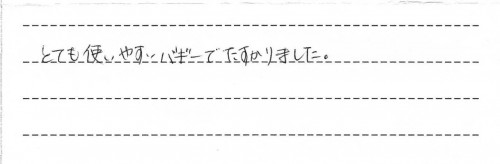 とても使いやすいバギーでたすかりました。